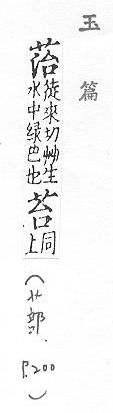 玉篇
菭徒來切艸生水中绿色也苔同上
(艸部.P.200)